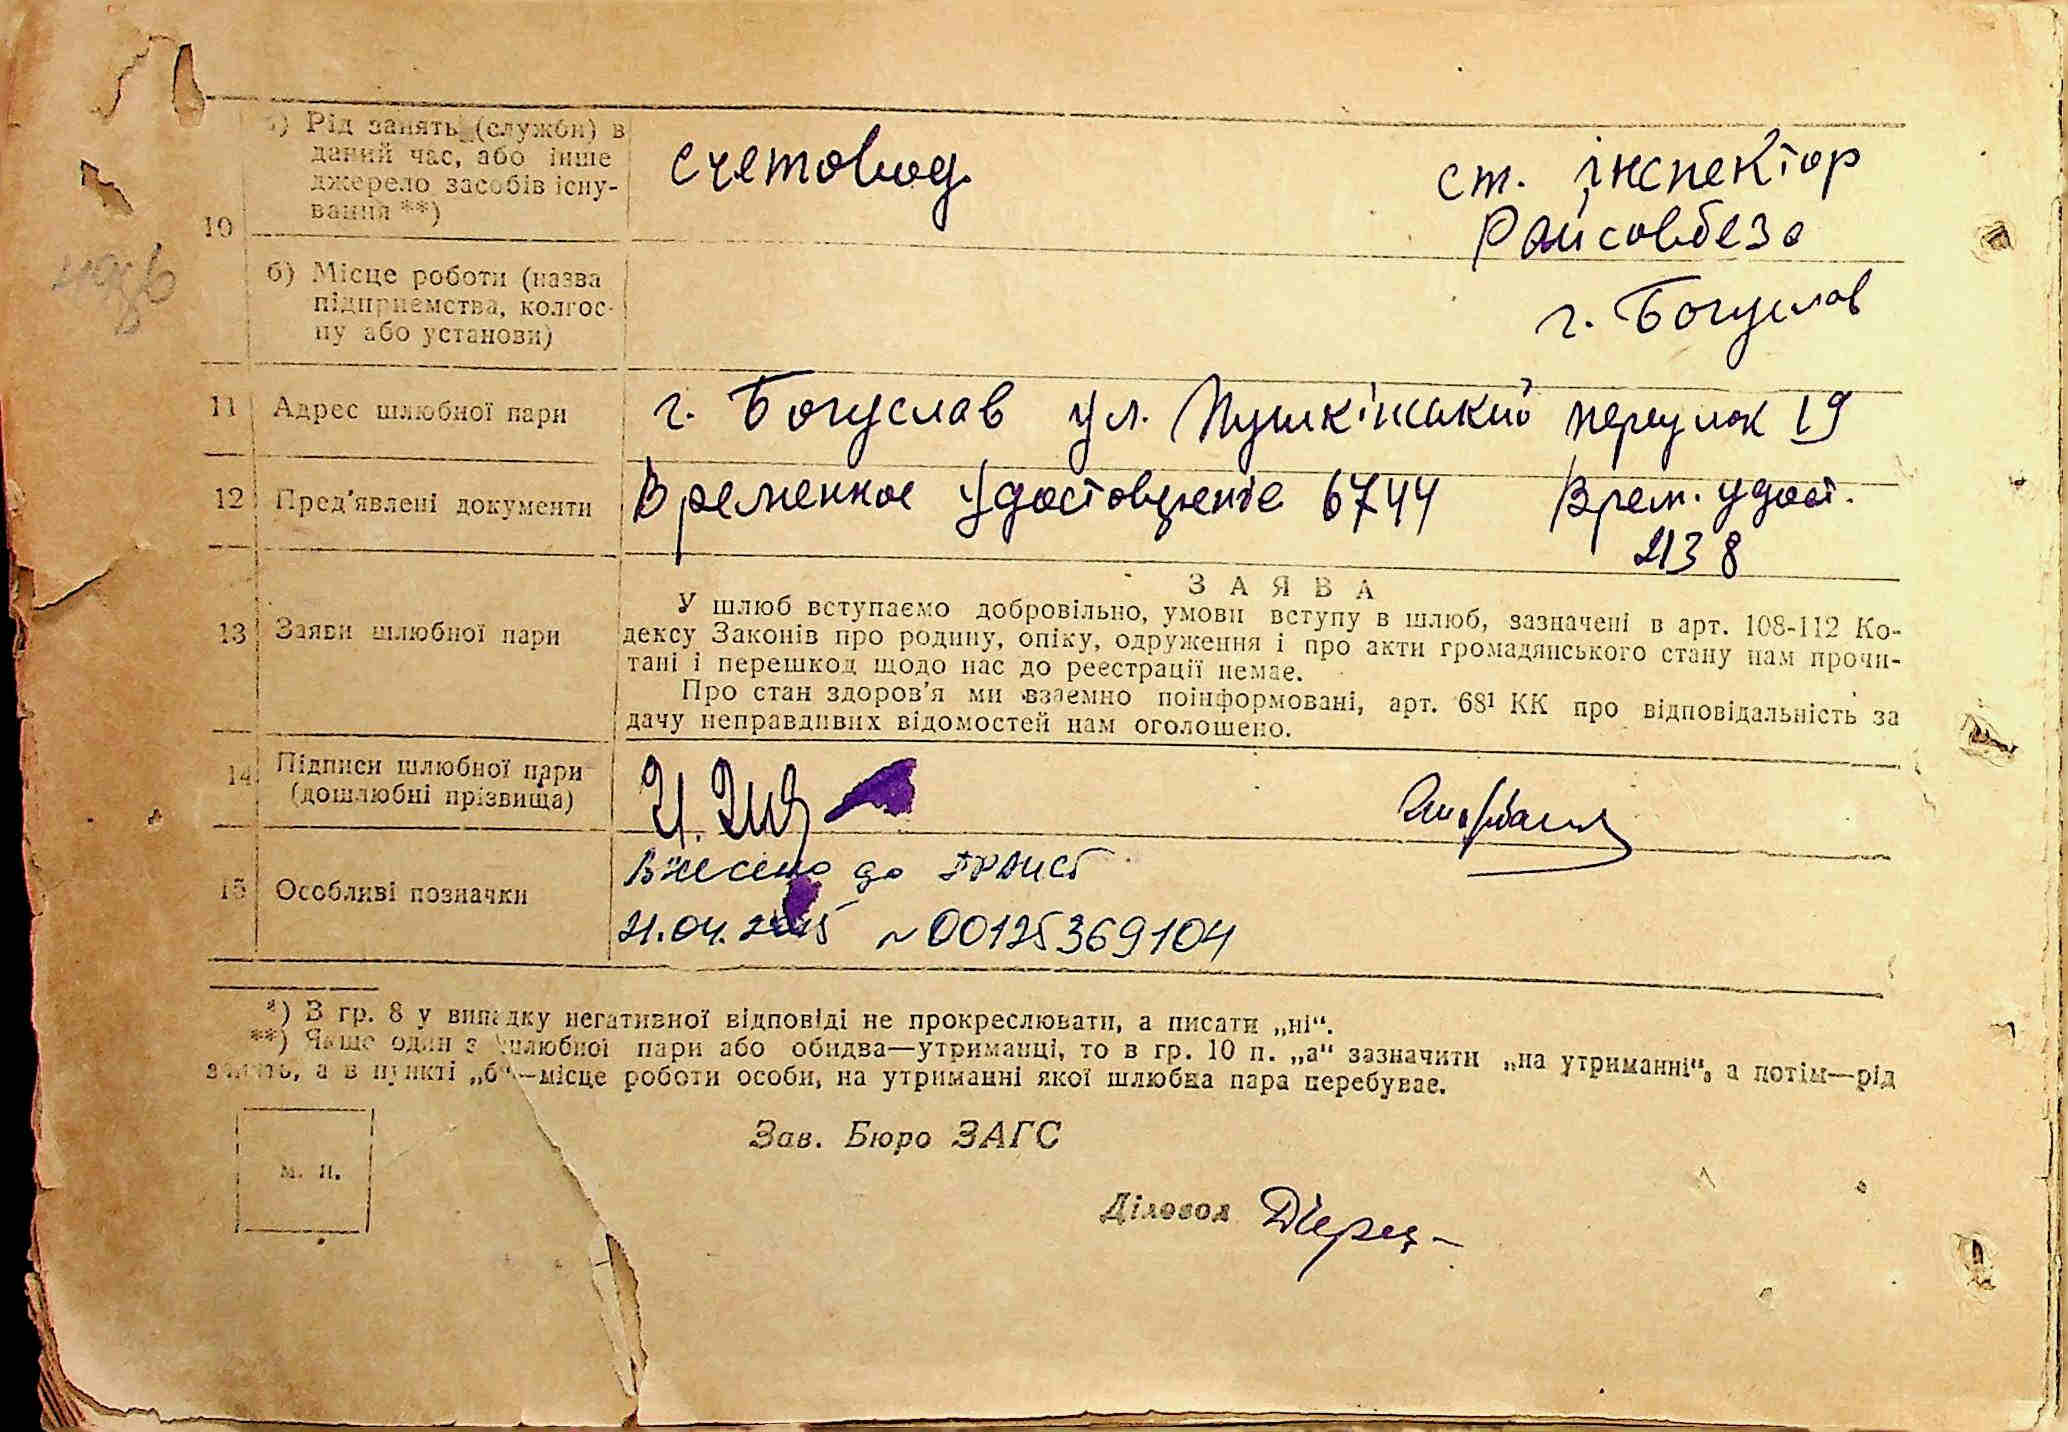 а) Рід занять (служби) в
даний час, або інше
джерело засобів існу-
вання **)
счетовод
ст. інспектор
Райсовбеза
10
б) Місце роботи (назва
підприємства, колгос-
пу або установи)
г. Богуслав
11 Адрес шлюбної пари
г. Богуслав ул. Пушкінський переулок 19
12 Пред'явлені документи
Временное удостоверение 6744 Врем. удост.
2138
13 Заяви шлюбної пари
ЗАЯВА
У шлюб вступаємо добровільно, умови вступу в шлюб, зазначені в арт. 108-112 Ко-
дексу Законів про родину, опіку, одруження і про акти громадянського стану нам прочи-
тані і перешкод щодо нас до реєстрації немає.
Про стан здоров'я ми взаємно поінформовані, арт. 68¹ КК про відповідальність за
дачу неправдивих відомостей нам оголошено.
14 Підписи шлюбної пари
(дошлюбні прізвища)
15 Особливі позначки
Внесено до
21.04.2015 ~00125369104
*) В гр. 8 у випадку негативної відповіді не прокреслювати, а писати „ні“.
**) Якщо один з шлюбної пари або обидва—утриманці, то в гр. 10 п. „а“ зазначити „на утриманні“, а потім—рід
занять, а в пункті „б“—місце роботи особи, на утриманні якої шлюбна пара перебуває.
м. п.
Зав. Бюро ЗАГС
Діловод